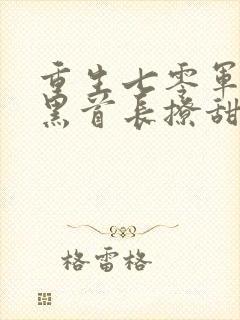 重生七零军
黑首长撩甜
格雷格